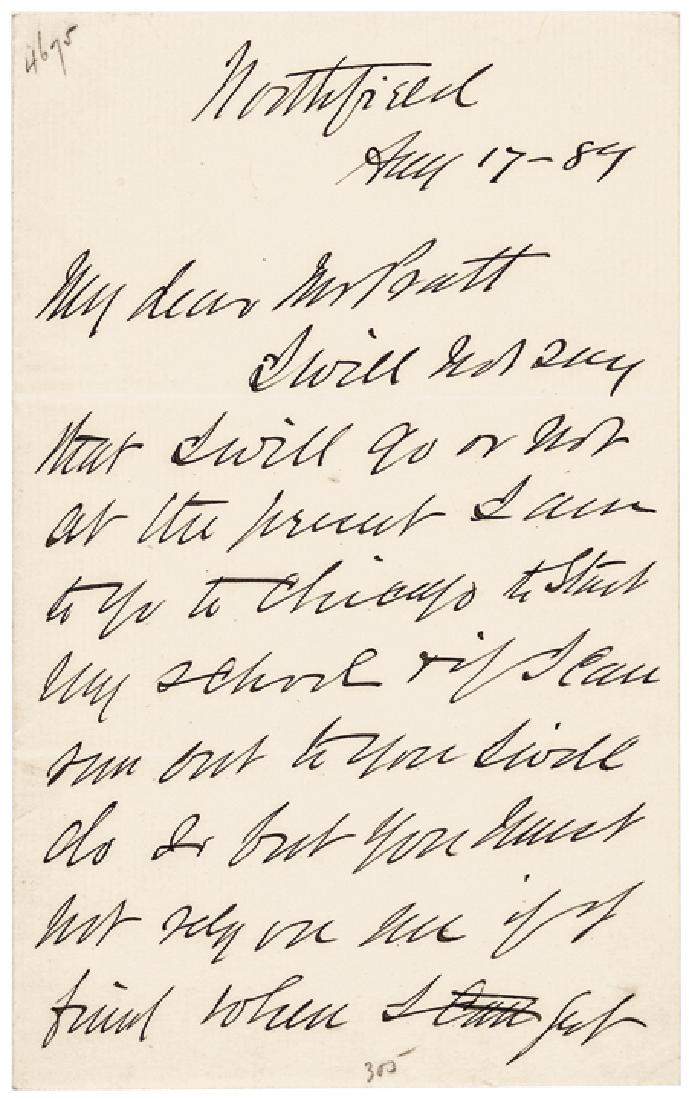 4675
Northfield
Aug 17-89
My dear Mr Pratt
I will not say
that I will go or not
at the present I am
to go to Chicago to Start
my school & if I can
run out to you I will
do so but you must
not rely on me if I
find when I can get
305